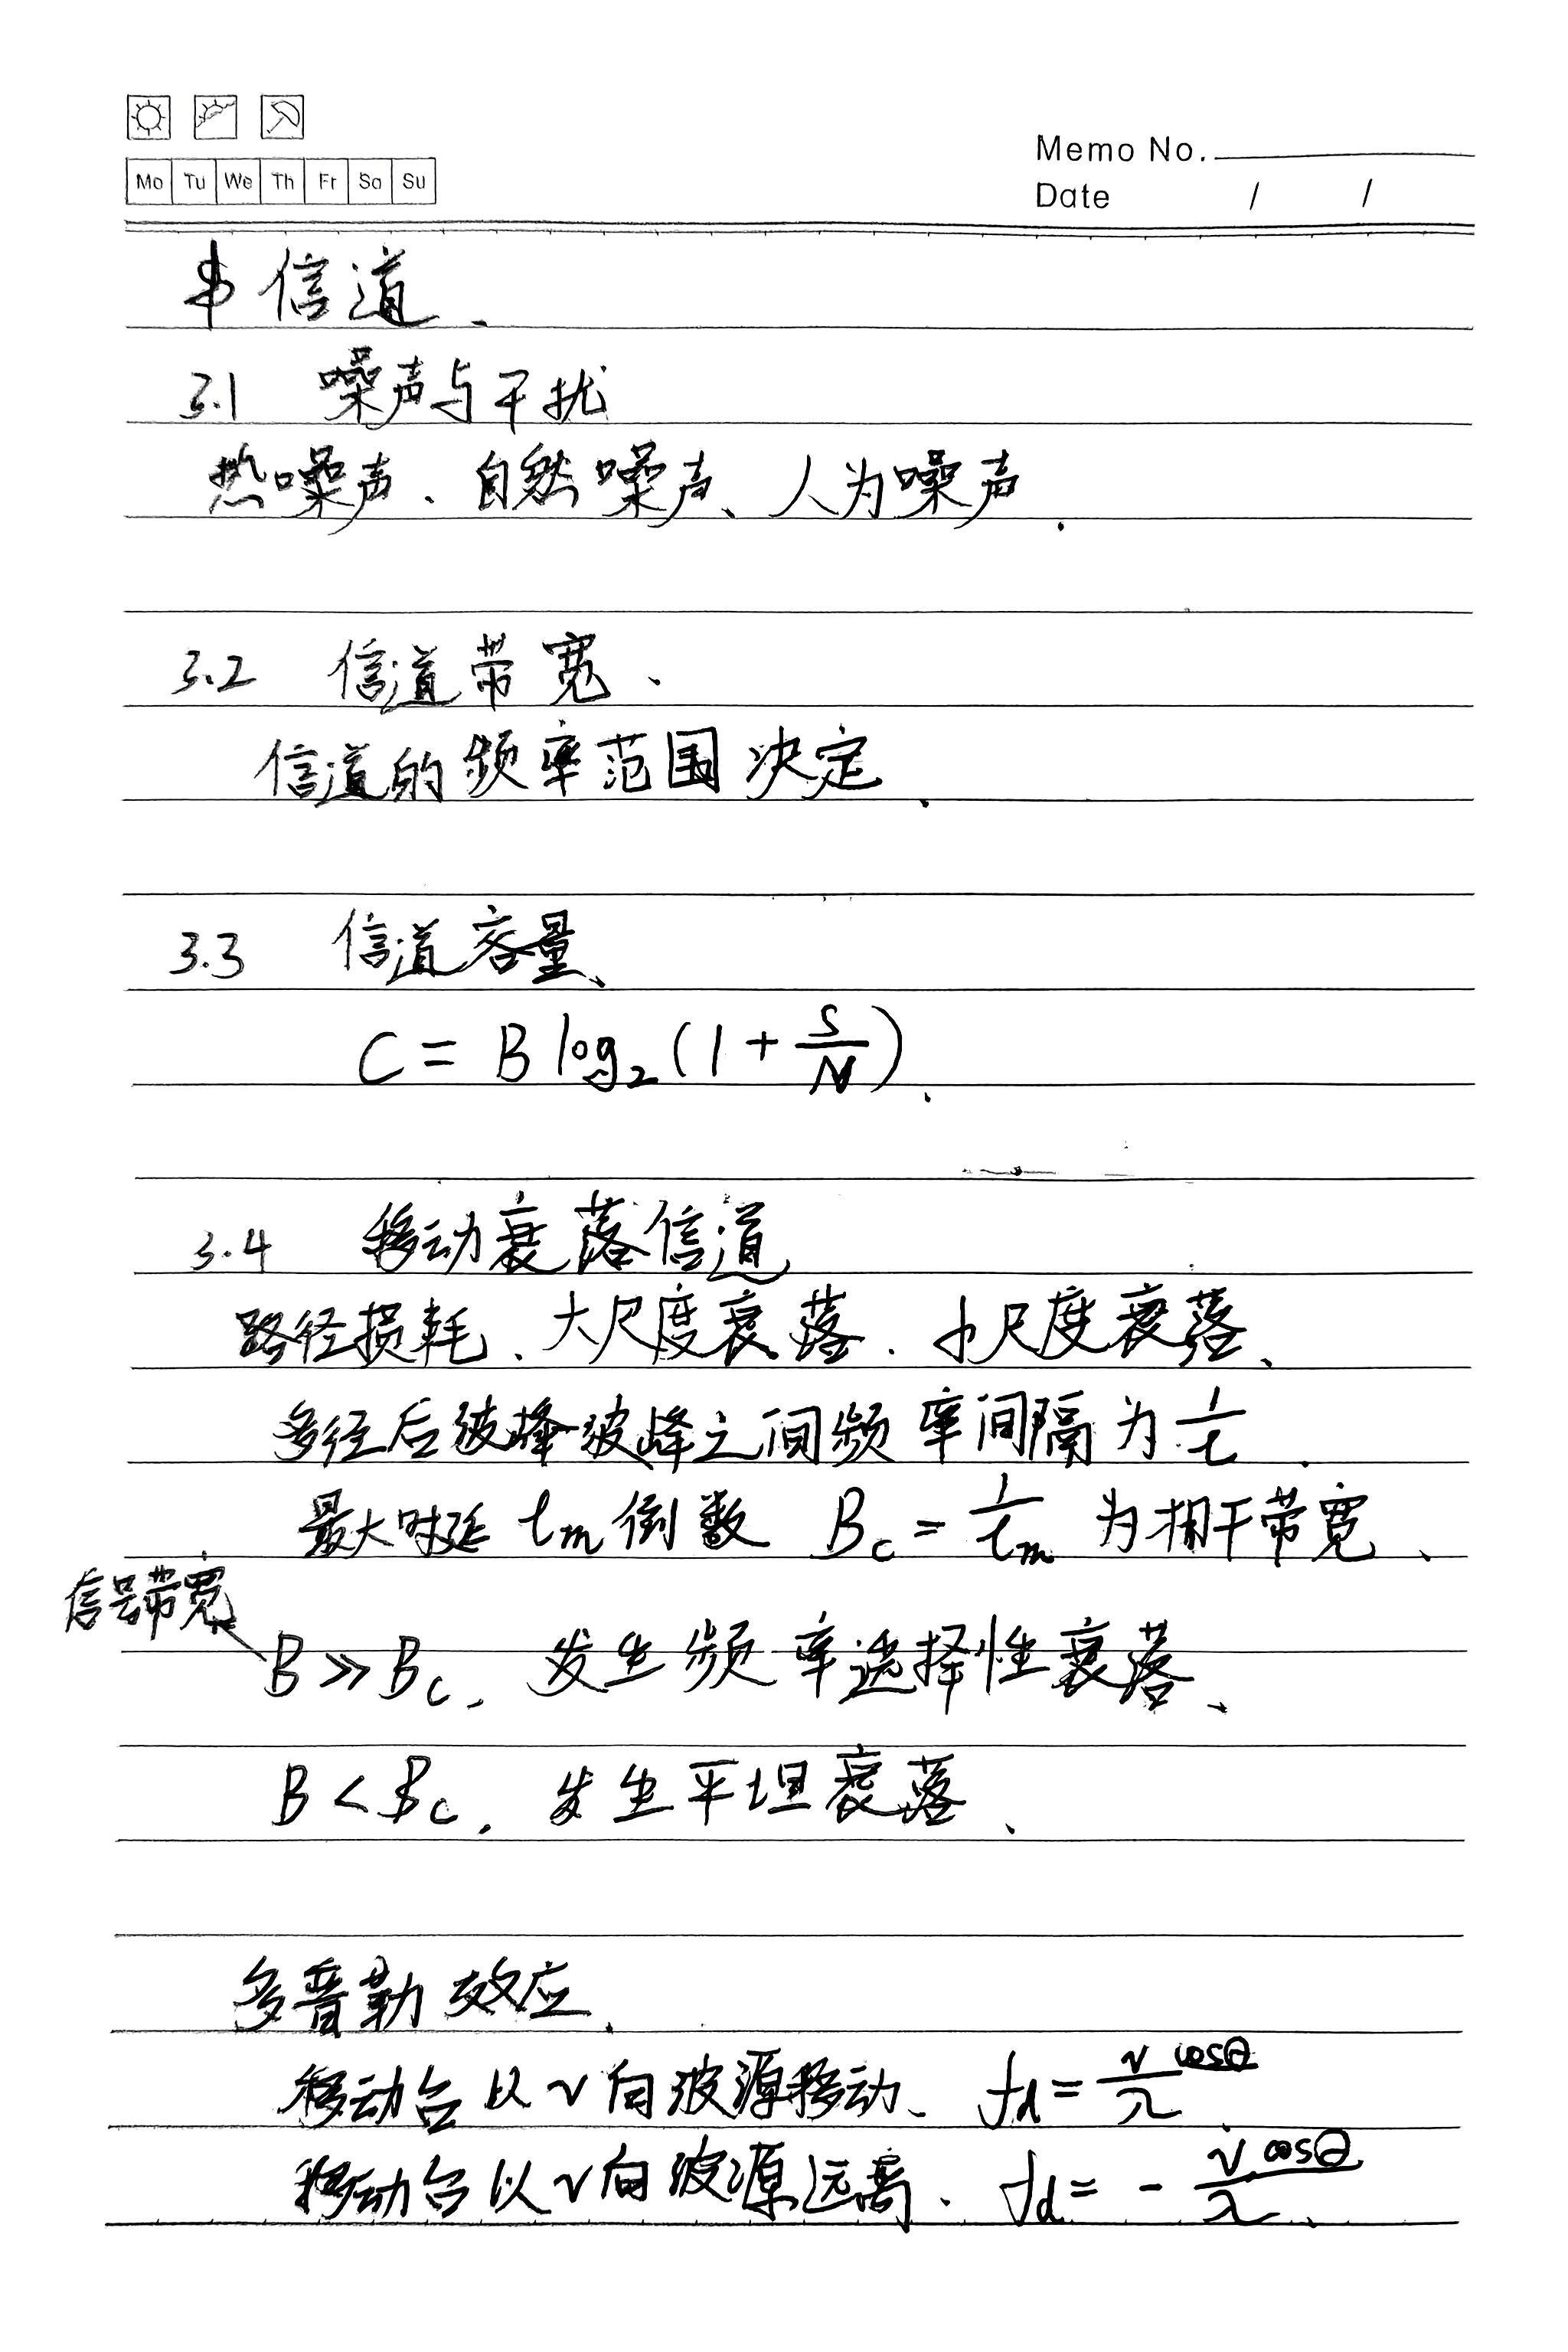 Mo Tu We Th Fr Sa Su
Memo No.
Date / /
信道、
3.1 噪声与干扰
热噪声、自然噪声、人为噪声.
3.2 信道带宽、
信道的频率范围决定、
3.3 信道容量、
C = B log₂(1 + S/N)、
3.4 移动衰落信道
路径损耗、大尺度衰落、小尺度衰落、
多径后波峰波峰之间频率间隔为 1/τ.
最大时延 τm 倒数 Bc = 1/τm 为相干带宽、
信号带宽
B >> Bc、发生频率选择性衰落、
B < Bc、发生平坦衰落、
多普勒效应、
移动台以 v 向波源移动、fd = v cosθ/λ
移动台以 v 向波源远离、fd = - v cosθ/λ、